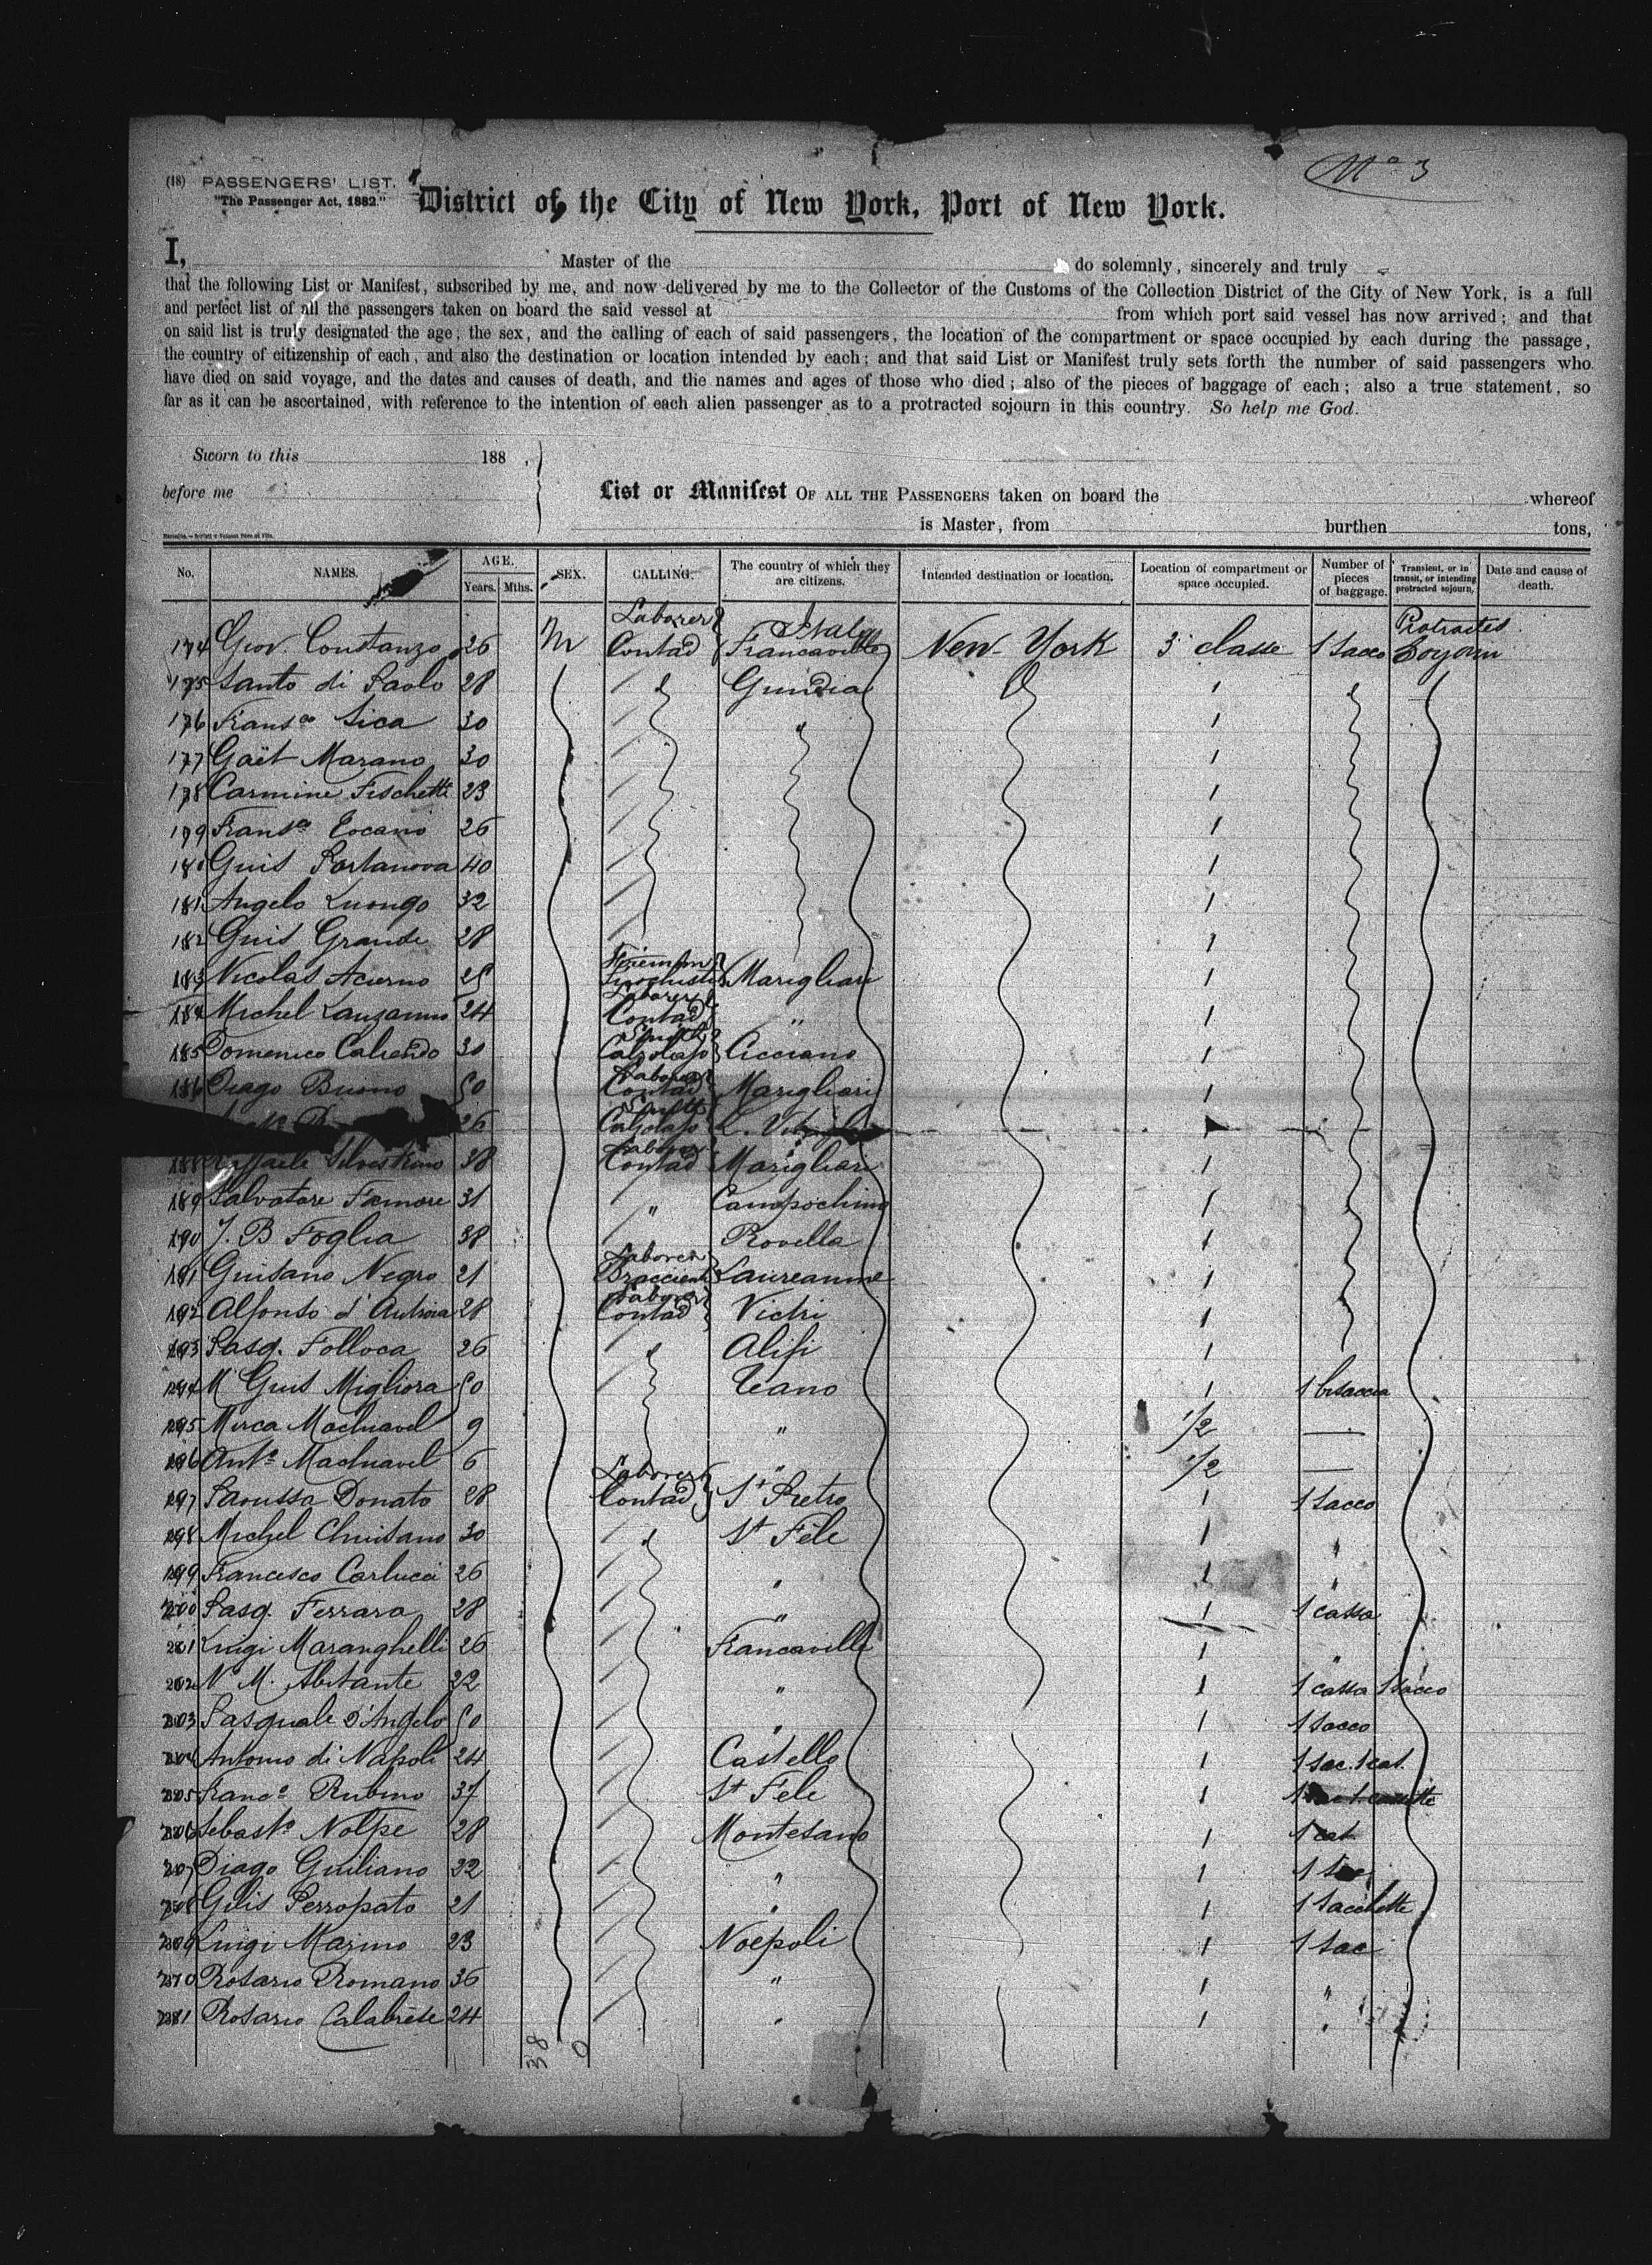 No 3
(18) PASSENGERS' LIST.
"The Passenger Act, 1882."
District of the City of New York, Port of New York.
I, Master of the do solemnly, sincerely and truly
that the following List or Manifest, subscribed by me, and now delivered by me to the Collector of the Customs of the Collection District of the City of New York, is a full
and perfect list of all the passengers taken on board the said vessel at from which port said vessel has now arrived; and that
on said list is truly designated the age, the sex, and the calling of each of said passengers, the location of the compartment or space occupied by each during the passage,
the country of citizenship of each, and also the destination or location intended by each; and that said List or Manifest truly sets forth the number of said passengers who
have died on said voyage, and the dates and causes of death, and the names and ages of those who died; also of the pieces of baggage of each; also a true statement, so
far as it can be ascertained, with reference to the intention of each alien passenger as to a protracted sojourn in this country. So help me God.
Sworn to this 188 ,
before me
List or Manifest OF ALL THE PASSENGERS taken on board the whereof
is Master, from burthen tons,
No. NAMES. AGE. Years. Mths. SEX. CALLING. The country of which they are citizens. Intended destination or location. Location of compartment or space occupied. Number of pieces of baggage. Transient, or in transit, or intending protracted sojourn. Date and cause of death.
174 Giov. Constanzo 26 M Laborer Contad Italy Francaville New-York 3 classe 1 sacco Protracted
175 Santo di Paolo 28 " 1
176 Fransco Sica 30 " 1
177 Gaët Marano 30 1
178 Carmine Fischetti 23 1
179 Fransco 26 1
180 Guis Portanova 40 1
181 Angelo Luongo 32 1
182 Guis Grande 28 1
183 Nicolas Acierno Marigliari 1
184 Michel 24 Laborer Contad " 1
185 Domenico 30 Calzolajo Cicciano 1
186 Diago Buono 50 Laborer Contad Marigliari 1
26 Calzolajo
188 Raffaele 38 Laborer Contad Marigliari 1
189 Salvatore 31 " 1
190 J. B Foglia 38 Rovella 1
191 Negro 21 Laborer 1
192 Alfonso 28 Laborer Contad Victri 1
193 Pasq. Folloca 26 " Alifi 1
194 M Guis Migliora 50 Teano 1 1 bisaccia
195 9 " 1/2 —
196 Anto 6 " 1/2 —
197 Donato 28 Laborer Contad St Pietro 1 1 sacco
198 Michel 30 " St Fele 1 "
199 Francesco Carlucci 26 " 1 "
200 Pasq. Ferrara 28 " 1 1 cassa
201 Luigi Maranghelli 26 Francaville 1 "
202 N M. Abitante 22 " 1 1 cassa 1 sacco
203 Pasquale D'Angelo 50 " 1 1 sacco
204 Antonio di Napoli 24 Castello 1 1 sac. 1 cas.
205 Franco Rubino 37 St Fele 1 1
206 Sebasto Nolpe 28 Montesano 1 1 cas
207 Diago Guiliano 22 " 1 1 sac
208 Perropato 21 " 1 1 sacchette
209 Luigi Marino 23 Noepoli 1 1 sac
210 Rosario Romano 36 " 1 "
211 Rosario Calabrese 24 " 1 "
38 0